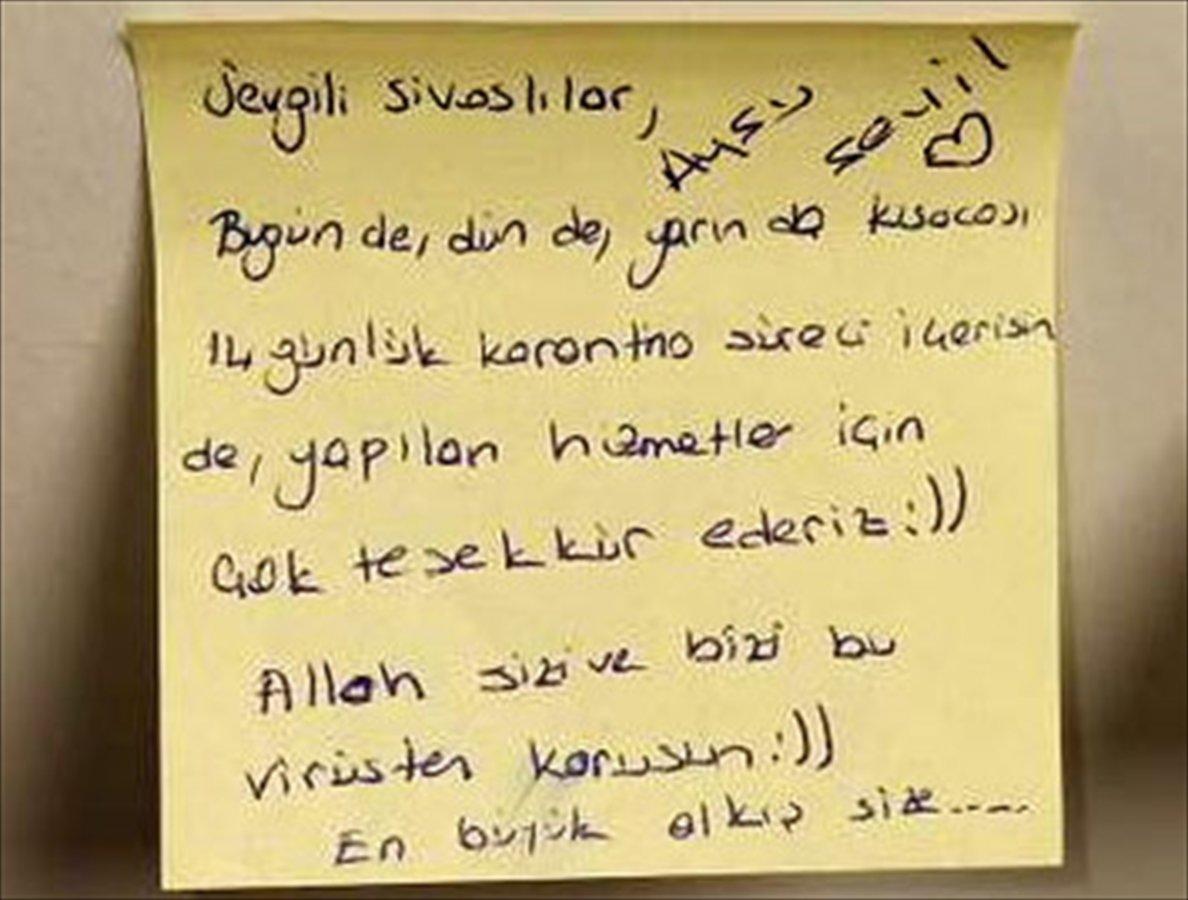 Sevgili Sivaslılar,
Aysu Sevil
Bugün de, dün de, yarın da kısacası
14 günlük karantina süreci içerisin
de, yapılan hizmetler için
Çok teşekkür ederiz :))
Allah sizi ve bizi bu
virüsten korusun :))
En büyük alkış size.....